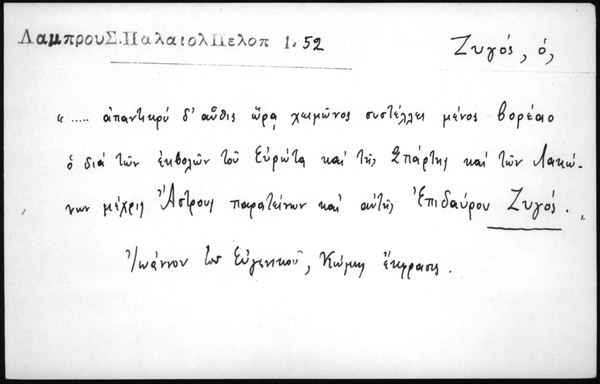 Λαμπρου Σ. Παλαιολ Πελοπ 1. 52
Ζυγός, ὁ,
"..... ἀπαντικρύ δ' αὖθις ὥρᾳ χειμῶνος συστέλλει μένος βορέαο
ὁ διά τῶν ἐκβολῶν τοῦ Εὐρώτα καί τῆς Σπάρτης καί τῶν Λακώ-
νων μέχρις Ἄστρους παρατείνων καί αὐτῆς Ἐπιδαύρου Ζυγός. "
Ἰωάννου τοῦ Εὐγενικοῦ, Κώμης ἔκφρασις.